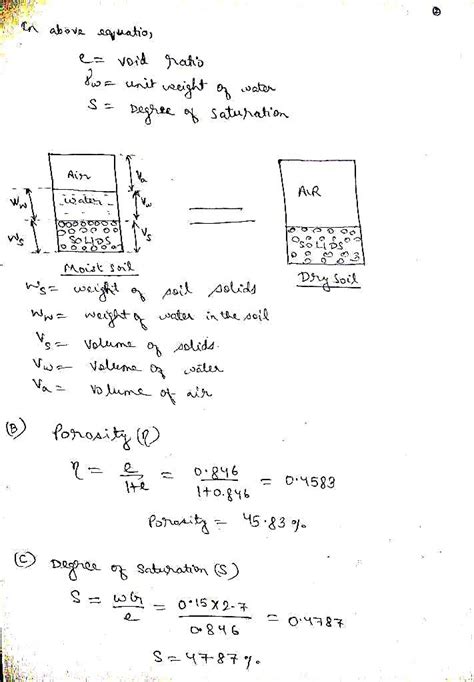 ②
In above equatio,
e = void ratio
γw = unit weight of water
S = Degree of saturation
Air
Va
Ww
water
Vw
Ws
SOLIDS
Vs
Moist soil
=
AIR
SOLIDS
Dry soil
Ws = weight of soil solids
Ww = weight of water in the soil
Vs = volume of solids.
Vw = Volume of water
Va = volume of air
(B) Porosity (η)
η = e/1+e = 0.846/1+0.846 = 0.4583
Porosity = 45.83 %
(C) Degree of saturation (S)
S = wG/e = 0.15×2.7/0.846 = 0.4787
S = 47.87 %.